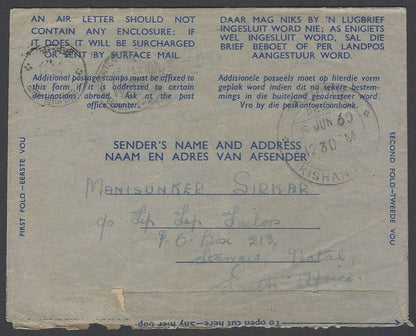 AN AIR LETTER SHOULD NOT
CONTAIN ANY ENCLOSURE; IF
IT DOES IT WILL BE SURCHARGED
OR SENT BY SURFACE MAIL.
DAAR MAG NIKS BY 'N LUGBRIEF
INGESLUIT WORD NIE; AS ENIGIETS
WEL INGESLUIT WORD, SAL DIE
BRIEF BEBOET OF PER LANDPOS
AANGESTUUR WORD.
Additional postage stamps must be affixed to
this form if it is addressed to certain
destinations abroad. Ask at the post
office counter.
Addisionele posseëls moet op hierdie vorm
geplak word indien dit na sekere bestem-
mings in die buiteland geadresseer word.
Vra by die poskantoortoonbank.
6 JUN 60
12 30 PM
KISHAN
SENDER'S NAME AND ADDRESS
NAAM EN ADRES VAN AFSENDER
MANISUNKER SIRKAR
c/o Tip Top Tailors
P.O. Box 213,
Stanger, Natal,
South Africa.
FIRST FOLD—EERSTE VOU
SECOND FOLD—TWEEDE VOU
To open cut here—Sny hier oop